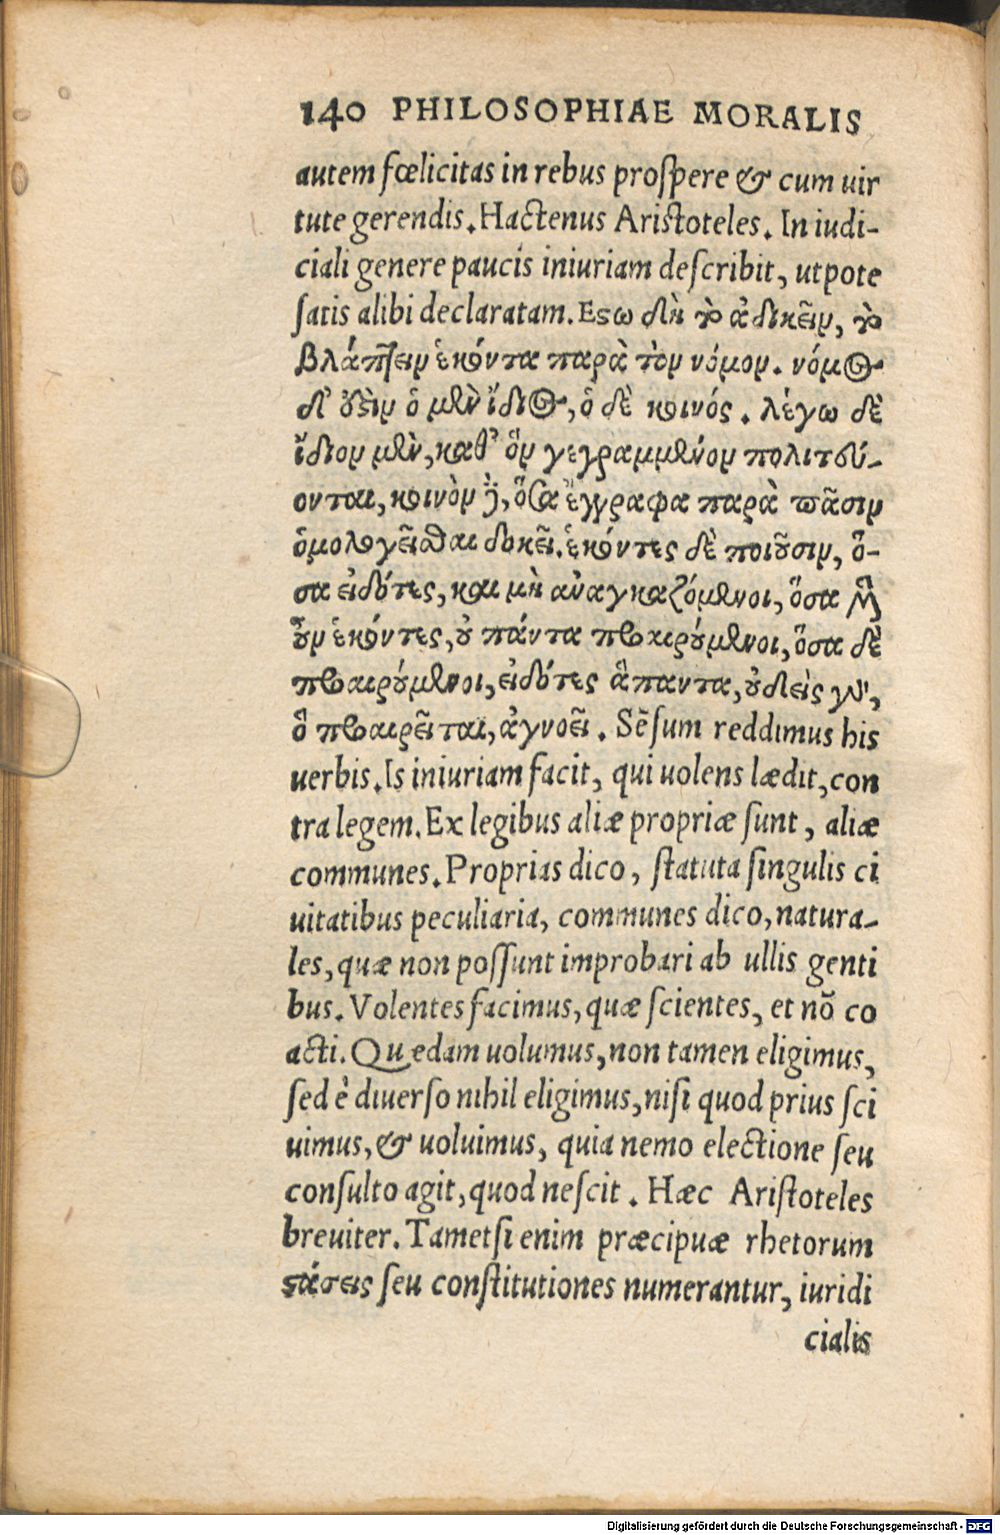 140 PHILOSOPHIAE MORALIS
autem fœlicitas in rebus prospere & cum uir
tute gerendis. Hactenus Aristoteles. In iudi-
ciali genere paucis iniuriam describit, utpote
satis alibi declaratam. Εϛω δὴ τὸ ἀδικεῖν, τὸ
βλάπτειν ἑκόντα παρὰ τὸν νόμον. νόμος
δ' ὅδὲιν ὁ μὲν ἴδιος, ὁ δὲ κοινός. λέγω δὲ
ἴδιον μὲν, καθ' ὃν γεγραμμένον πολιτεύ-
ονται, κοινὸν δὲ, ὅσα ἔγγραφα παρὰ πᾶσιν
ὁμολογεῖσθαι δοκεῖ. ἑκόντες δὲ ποιοῦσιν, ὅ-
σα εἰδότες, και μὴ ἀναγκαζόμενοι, ὅσα μὲν
οὖν ἑκόντες, οὐ πάντα προαιρούμενοι, ὅσα δὲ
προαιρούμενοι, εἰδότες ἅπαντα, οὐδεὶς γὰρ,
ὃ προαιρεῖται, ἀγνοεῖ. Sēsum reddimus his
uerbis. Is iniuriam facit, qui uolens lædit, con
tra legem. Ex legibus aliæ propriæ sunt, aliæ
communes. Proprias dico, statuta singulis ci
uitatibus peculiaria, communes dico, natura-
les, quæ non possunt improbari ab ullis genti
bus. Volentes facimus, quæ scientes, et nō co
acti. Quædam uolumus, non tamen eligimus,
sed è diuerso nihil eligimus, nisi quod prius sci
uimus, & uoluimus, quia nemo electione seu
consulto agit, quod nescit. Hæc Aristoteles
breuiter. Tametsi enim præcipuæ rhetorum
ϛάσεις seu constitutiones numerantur, iuridi
cialis
Digitalisierung gefördert durch die Deutsche Forschungsgemeinschaft - DFG